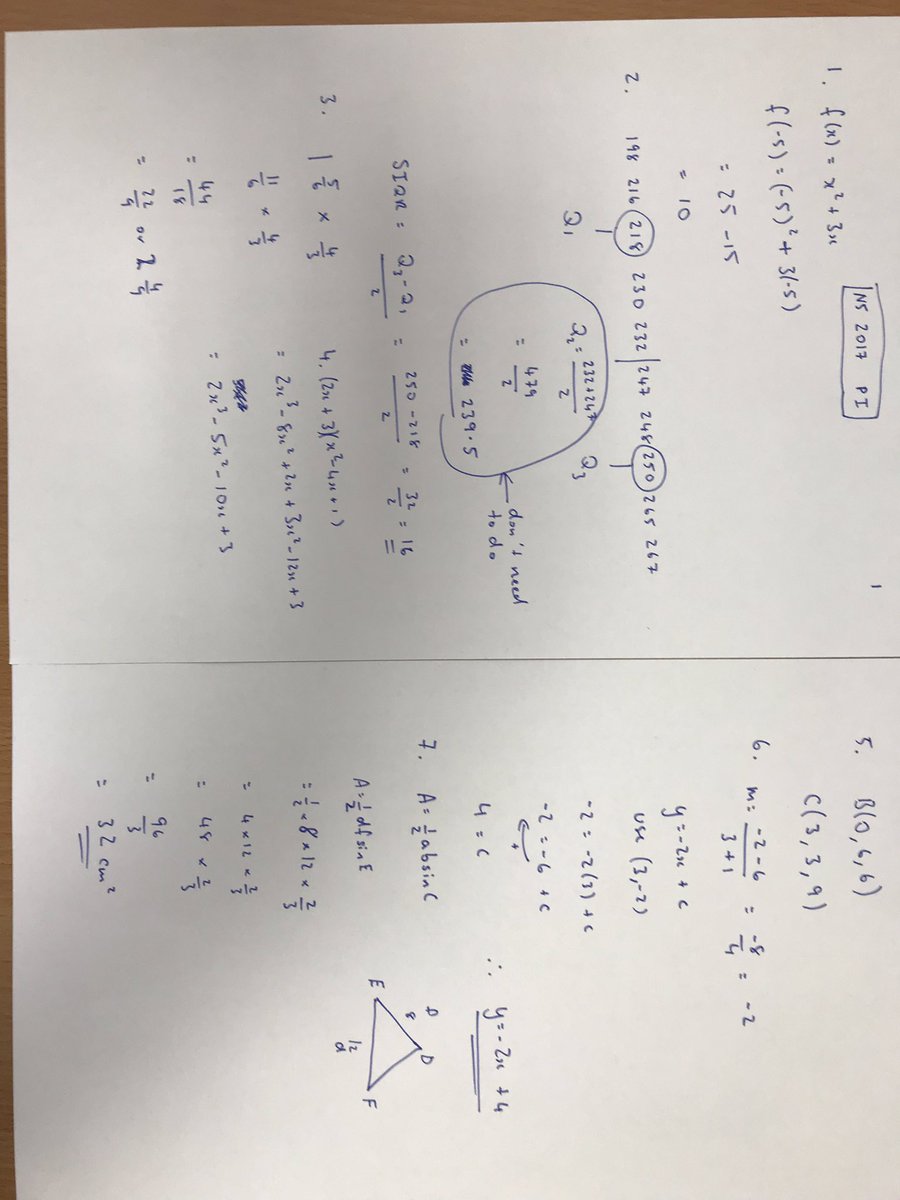 1
N5 2017 P1
1. f(x) = x² + 3x
f(-5) = (-5)² + 3(-5)
= 25 - 15
= 10
2. 198 216 218 230 232 | 247 248 250 265 267
Q1 Q3
Q2 = (232+247)/2
= 479/2
= 239.5
← don't need to do
SIQR = (Q3 - Q1)/2 = (250 - 218)/2 = 32/2 = 16
3. 1 5/6 × 4/3
11/6 × 4/3
= 44/18
= 22/9 or 2 4/9
4. (2x + 3)(x² - 4x + 1)
= 2x³ - 8x² + 2x + 3x² - 12x + 3
= 2x³ - 5x² - 10x + 3
5. B(0, 6, 6)
C(3, 3, 9)
6. m = (-2 - 6)/(3 + 1) = -8/4 = -2
y = -2x + c
use (3, -2)
-2 = -2(3) + c
-2 = -6 + c
+
4 = c
∴ y = -2x + 4
7. A = ½ab sin C
A = ½df sin E
= ½ × 8 × 12 × 2/3
= 4 × 12 × 2/3
= 48 × 2/3
= 96/3
= 32 cm²
D
8
E
12
d
F